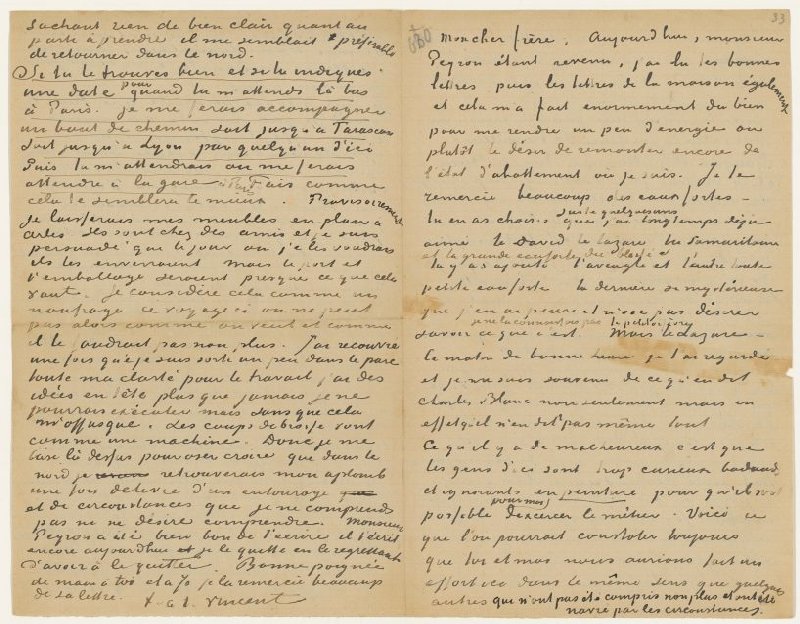 sachant rien de bien clair quant au
parti à prendre il me semblait préférable
de retourner dans le nord.
Si tu le trouves bien et si tu indiques
une date pour quand tu m'attends là bas
à Paris. je me ferais accompagner
un bout de chemin soit jusqu'à Tarascon
soit jusqu'à Lyon par quelqu'un d'ici
Puis tu m'attendrais ou me ferais
attendre à la gare à Paris Fais comme
cela te semblera le mieux. Provisoirement
je laisserais mes meubles en plan à
Arles. Ils sont chez des amis et je suis
persuadé que le jour ou je les voudrais
ils les enverraient mais le port et
l'emballage seraient presque ce que cela
vaut. Je considère cela comme un
naufrage ce voyage ci on ne peut
pas alors comme on veut et comme
il le faudrait pas non plus. J'ai recouvré
une fois que je suis sorti un peu dans le parc
toute ma clarté pour le travail j'ai des
idées en tête plus que jamais je ne
pourrais exécuter mais sans que cela
m'offusque. Les coups de brosse vont
comme une machine. Donc je me
base là dessus pour oser croire que dans le
nord je retrouverais mon aplomb
une fois délivré d'un entourage
et de circonstances que je ne comprends
pas ni ne désire comprendre. Monsieur
Peyron a été bien bon de t'écrire il t'écrit
encore aujourdhui et je le quitte en le regrettant
d'avoir à le quitter. Bonne poignée
de main à toi et à Jo je la remercie beaucoup
de sa lettre. t. à t. Vincent
33
mon cher frère, Aujourd'hui, monsieur
Peyron étant revenu, j'ai lu tes bonnes
lettres puis les lettres de la maison également
et cela m'a fait enormement du bien
pour me rendre un peu d'energie ou
plutôt le désir de remonter encore de
l'état d'abattement où je suis. Je te
remercie beaucoup des eaux fortes –
tu en as choisi juste quelquesuns que j'ai longtemps déja
aimé le David le Lazare la Samaritaine
et la grande eauforte du blessé et
tu y as ajouté l'aveugle et l'autre toute
petite eau forte la dernière si mystérieuse
que j'en ai peur et n'ose pas désirer
savoir ce que c'est je ne la connaissais pas le petit orfèvre. Mais le Lazare –
le matin de bonne heure je l'ai regardé
et je me suis souvenu de ce qu'en dit
Charles Blanc non seulement mais en
effet qu'il n'en dit pas même tout
Ce qu'il y a de malheureux c'est que
les gens d'ici sont trop curieux badauds
et ignorants en peinture pour qu'il soit
possible pour moi d'exercer le métier. Voici ce
que l'on pourrait constater toujours
que toi et moi nous aurions fait un
effort ici dans le même sens que quelques
autres que n'ont pas été compris non plus et ont été
navré par les circonstances.